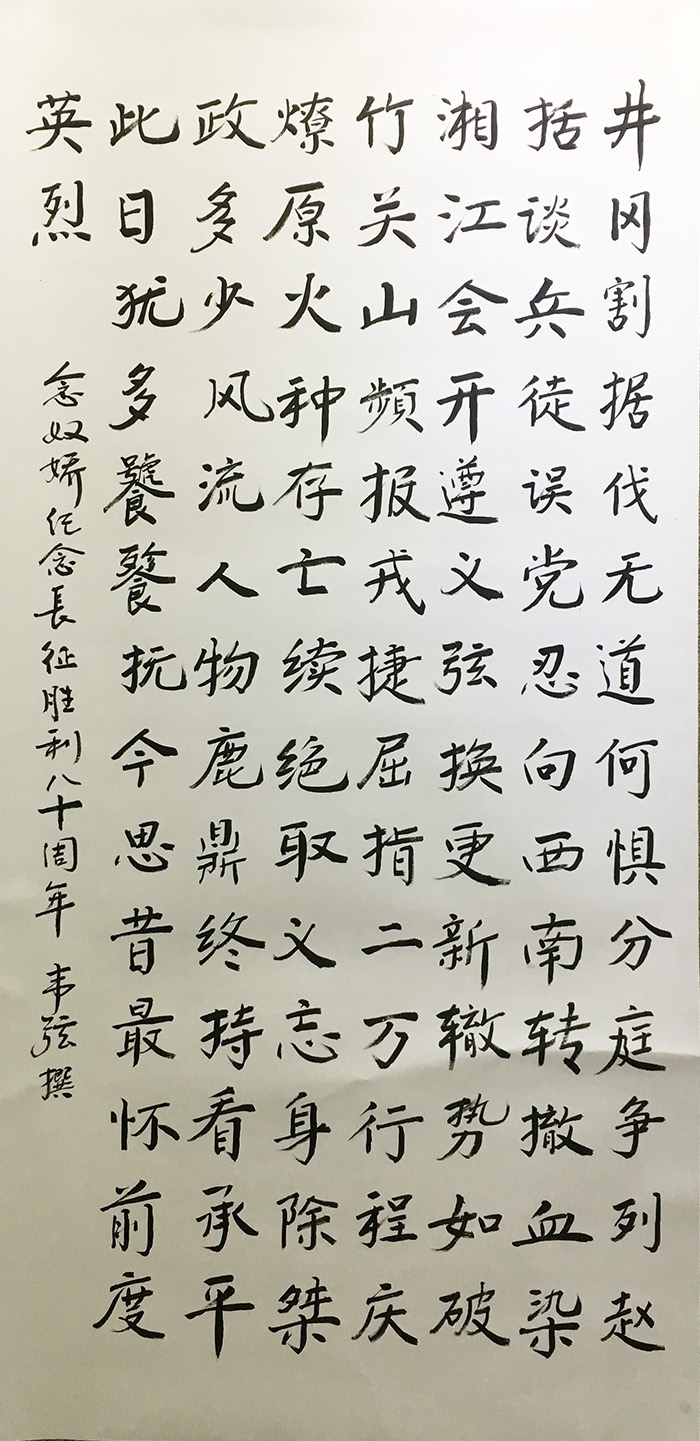 井冈割据伐无道何惧分庭争列赵
括谈兵徒误党忍向西南转撤血染
湘江会开遵义弦换更新辙势如破
竹关山频报戎捷屈指二万行程庆
燎原火种存亡续绝取义忘身除桀
政多少风流人物鹿鼎终持看承平
此日犹多饕餮抚今思昔最怀前度
英烈
念奴娇纪念長征胜利八十周年 韦弦撰